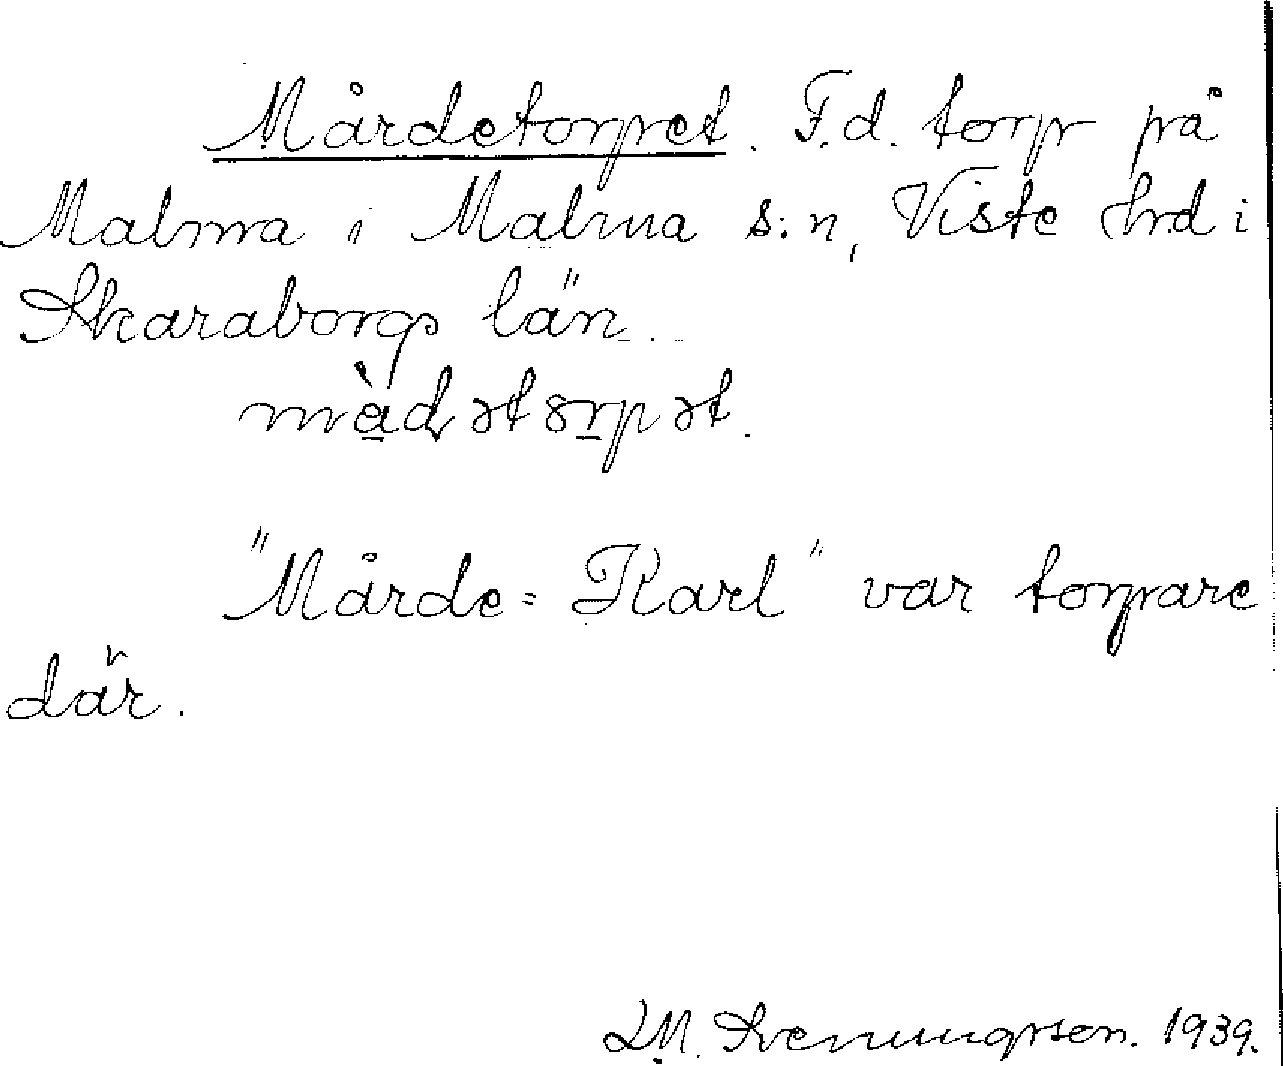 Mårdetorpet. F.d. torp på
Malma i Malma s:n, Viste hrd i
Skaraborgs län.
"Mårde= Karl" var torpare
där.
Svenungsson. 1939.